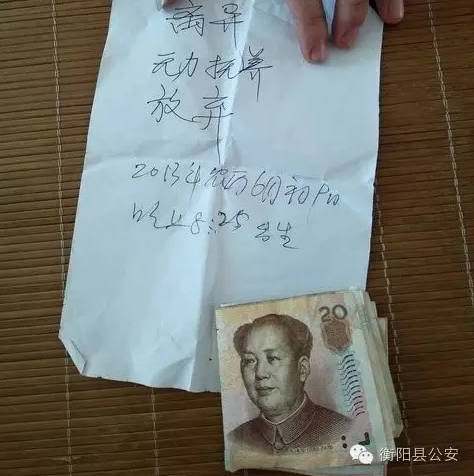 离异
无力抚养
放弃
2013年农历6月初
晚上8:25出生
20
衡阳县公安